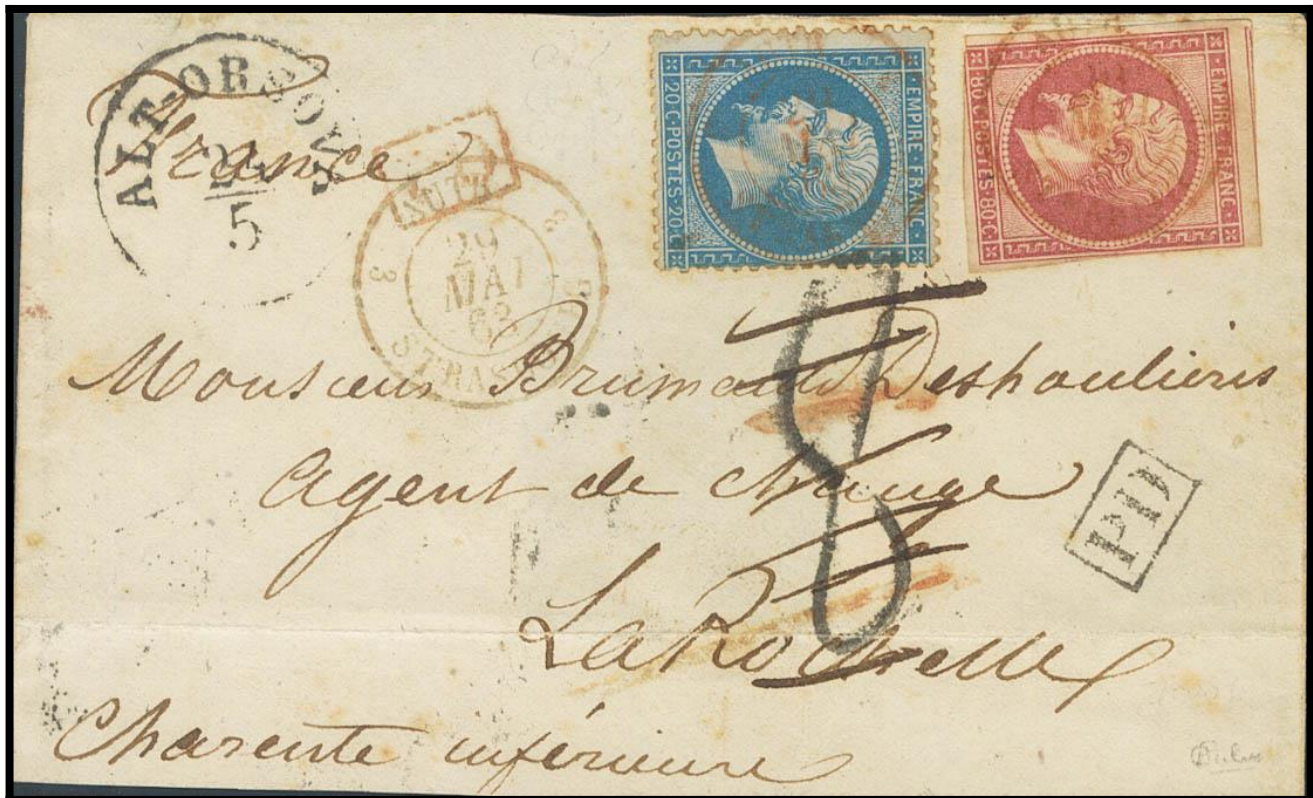 ALT-ORSOVA
24
5
France
AUTR
29
MAI
63
3 STRASB
20.C·POSTES·20.C
EMPIRE·FRANC
80.C·POSTES·80.C
EMPIRE·FRANC
8
Monsieur Brumauld Deshoulières
agent de change
PD
La Rochelle
Charente inférieure